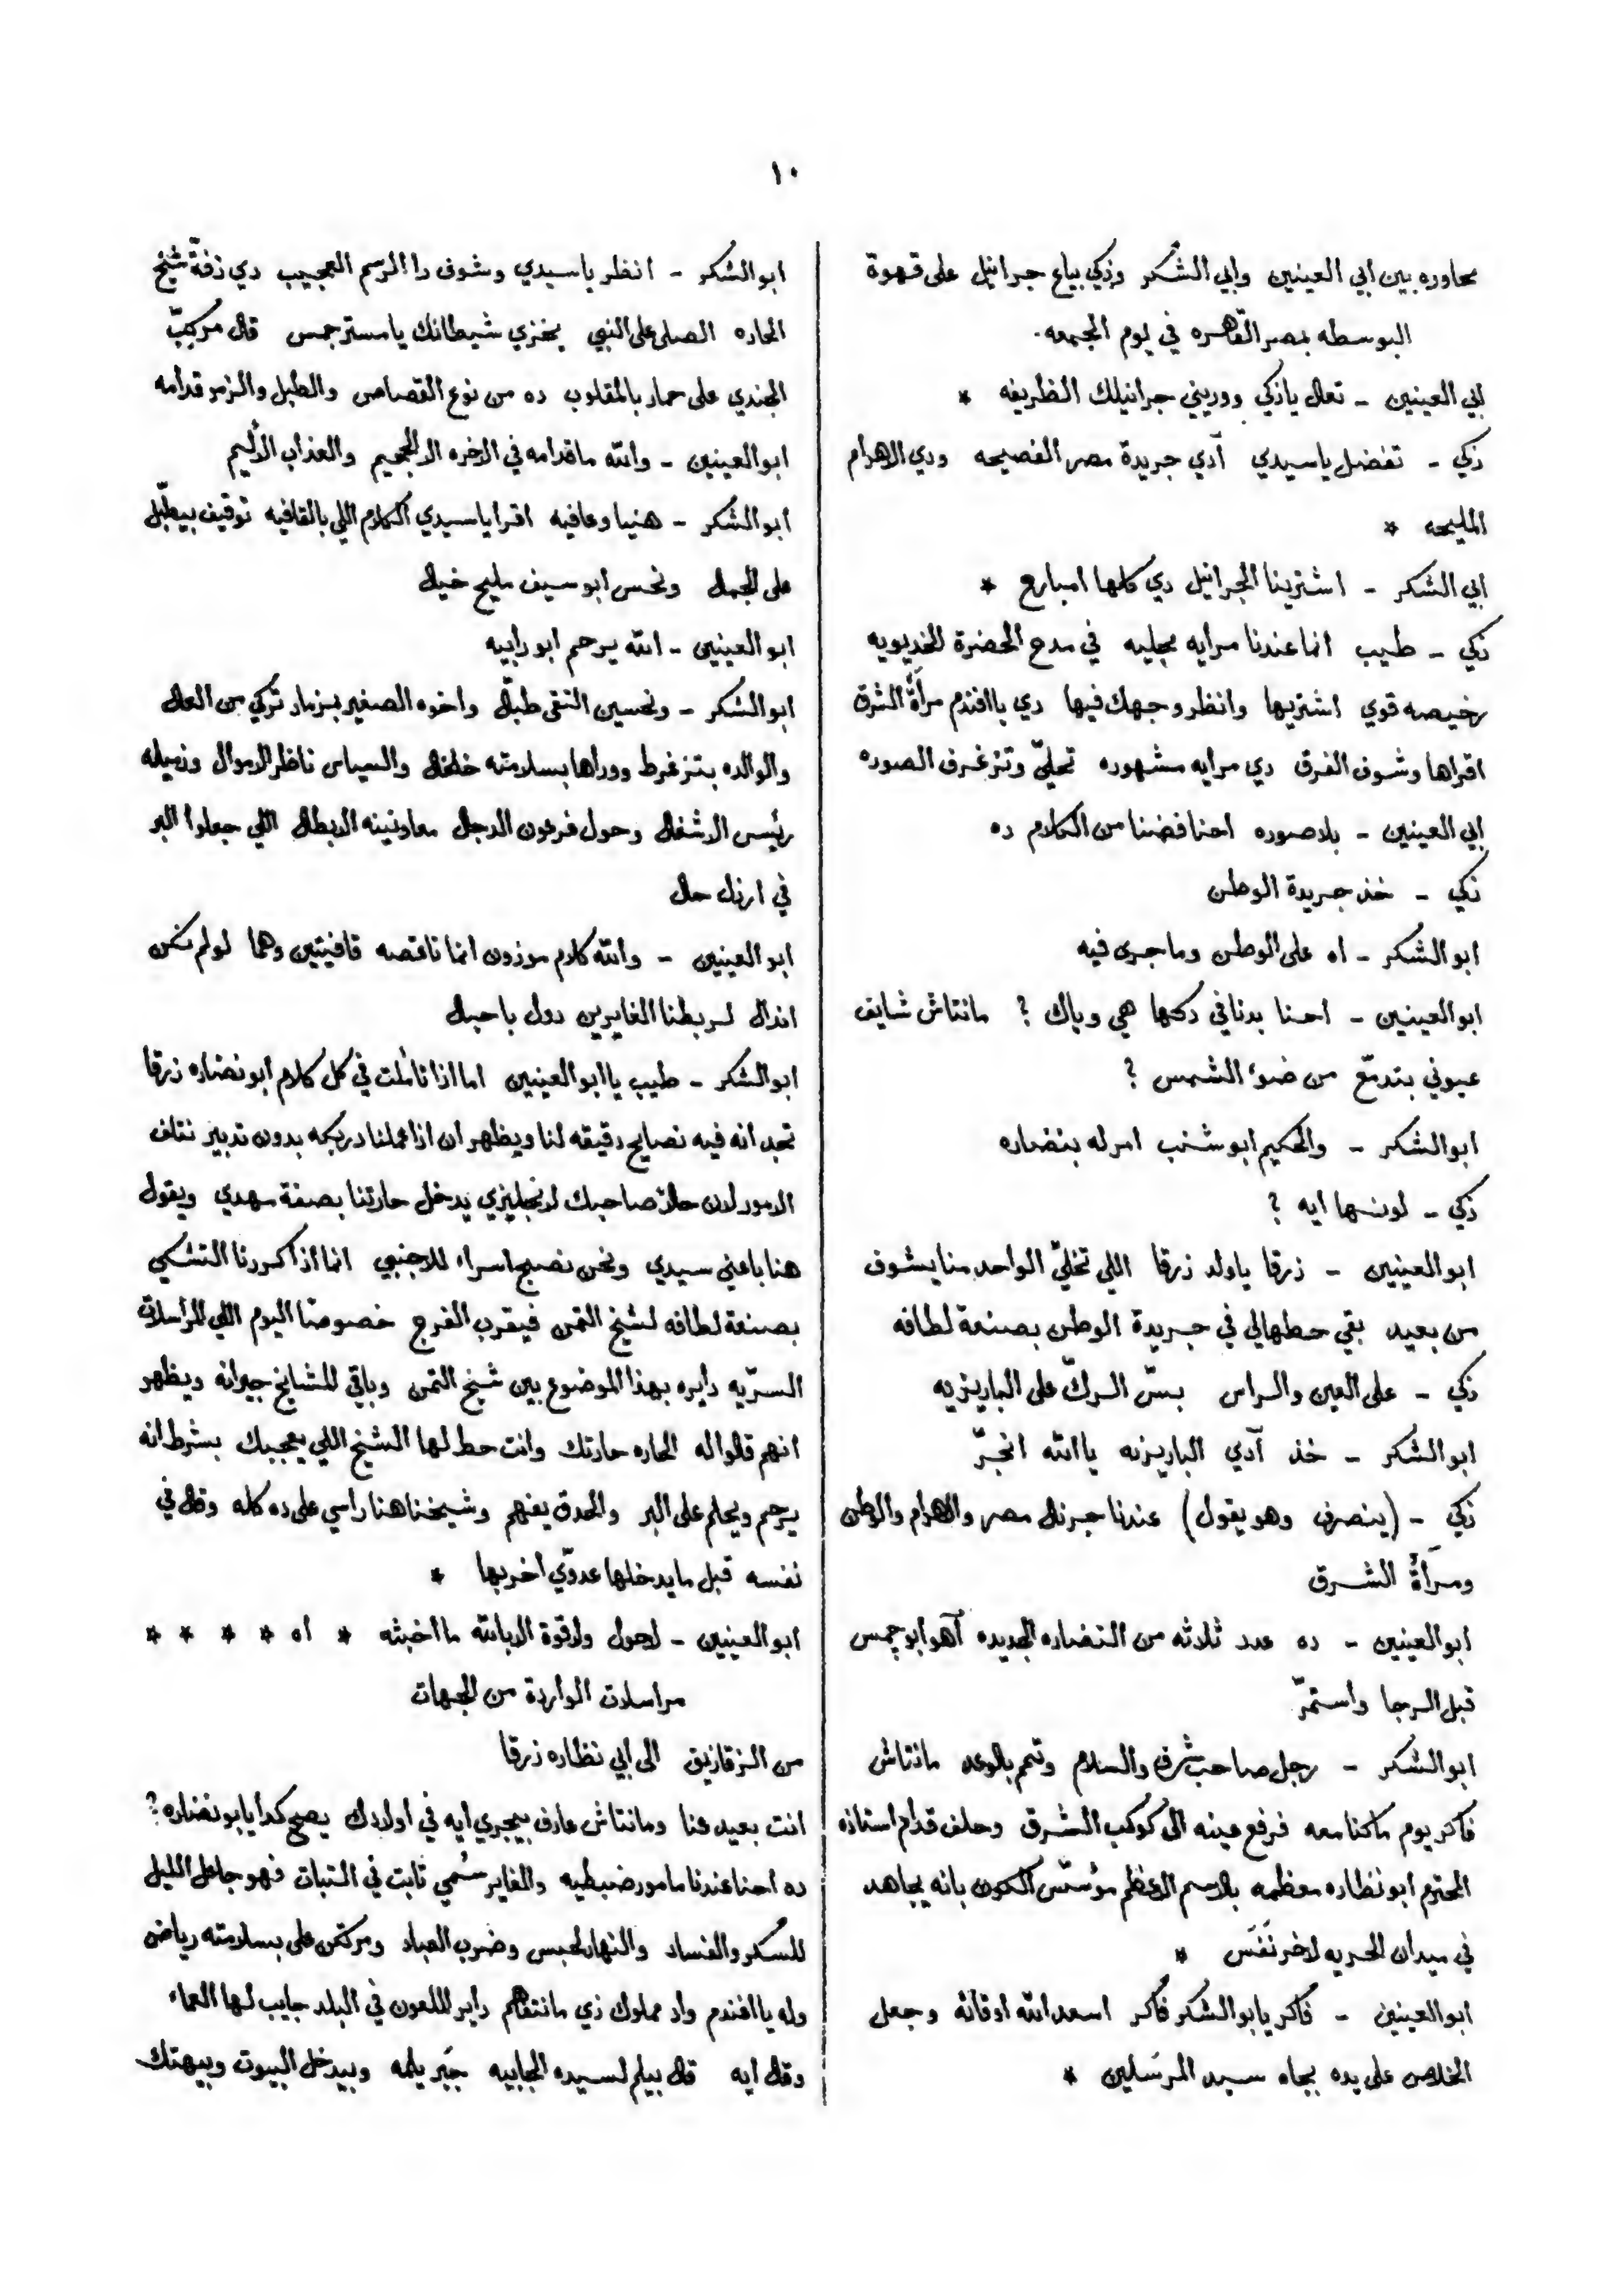 ١٠
محاوره بين ابي العينين وابي الشكر وزكي بياع جرانيل على قهوة
البوسطه بمصر القاهره في يوم الجمعه.
ابي العينين - تعال يا زكي ووريني جرانيلك الظريفه *
زكي - تفضل يا سيدي آدي جريدة مصر الفصيحه ودي الاهرام
المليحه *
ابي الشكر - اشترينا الجرانيل دي كلها امبارع *
زكي - طيب انما عندنا مرايه مجليه في مدح الحضرة الخديويه
رخيصه قوي اشتريها وانظر وجهك فيها دي يا افندم مرأة الشرق
اقراها وشوف الفرق دي مرايه مشهوره تحلّي وتزغرف الصوره
ابي العينين - بلا صوره احنا فضنا من الكلام ده
زكي - خذ جريدة الوطن
ابو الشكر - اه على الوطن وما جرى فيه
ابو العينين - احنا بدنا في دكها هي وياك ؟ مانتاش شايف
عيوني بتدمّع من ضوء الشمس ؟
ابو الشكر - والحكيم ابو شنب امر له بنضاره
زكي - لونها ايه ؟
ابو العينين - زرقا يا ولد زرقا اللي تخلّي الواحد منا يشوف
من بعيد بقي حطهالي في جريدة الوطن بصنعة لطافه
زكي - على العين والراس بسّ الركّ على الباريزيه
ابو الشكر - خذ آدي الباريزيه يا الله انجرّ
زكي - (ينصرف وهو يقول) عندنا جرنال مصر والاهرام والوطن
ومرأة الشرق
ابو العينين - ده عدد ثلاثه من النضاره الجديده آهو ابو جمس
قبل الرجا واستمرّ
ابو الشكر - رجل صاحب شرف والسلام وتمم بالوعد مانتاش
فاكر يوم ما كنا معه فرفع عينه الى كوكب الشرق وحلف قدام استاذه
المحترم ابو نظاره معظمه بالاسم الاعظم مؤسّس الكون بانه يجاهد
في ميدان الحريه لاخر نَفَس *
ابو العينين - فاكر يابو الشكر فاكر اسعد الله اوقاته وجعل
الخلاص على يده بجاه سيد المرسَلين *
ابو الشكر - انظر يا سيدي وشوف دا الرسم العجيب دي زفّة شيخ
الحاره الصلى على النبي يخزي شيطانك يا مستر جمس قال مركّبّ
الجندي على حمار بالمقلوب ده من نوع القصاص والطبل والزمر قدامه
ابو العينين - والله ما قدامه في الاخره الا الجحيم والعذاب الأليم
ابو الشكر - هنيا وعافيه اقرا يا سيدي الكلام اللي بالقافيه توقيف بيطبّل
على الجمال ونحس ابو سيف مليح خيال
ابو العينين - الله يرحم ابو رابيه
ابو الشكر - ونحسين النقى طبّال واخوه الصغير بزمار تركي من العال
والوالده بتزغرط ووراها بسلامته خلخال والسياس ناظر الاموال وزميله
رئيس الاشغال وحول فرعون الدجال معاونينه الابطال اللي جعلوا البر
في ارذل حال
ابو العينين - والله كلام موزون انما ناقصه قافيتين وهما لولم نكن
انذال لربطنا الغايرين دول باحبال
ابو الشكر - طيب يا ابو العينين اما اذا تأملت في كل كلام ابو نضاره زرقا
تجد انه فيه نصايح دقيقه لنا ويظهر ان اذا عملنا دربكه بدون تدبير نتلف
الامور لان حالاً صاحبك الانجليزي يدخل حارتنا بصفة مهدي ويقول
هنا باعني سيدي ونحن نصبح اسراء للاجنبي انما اذا كررنا التشكي
بصنعة لطافه لشيخ التمن فيقرب الفرج خصوصًا اليوم اللي المراسلات
السرّيه دايره بهذا الموضوع بين شيخ التمن وباقي المشايخ جيرانه ويظهر
انهم قالوا له الحاره حارتك وانت حط لها الشيخ اللي يعجبك بشرط انه
يرحم ويحلم على البر والحدق يفهم وشيخنا هنا راسي على ده كله وقال في
نفسه قبل ما يدخلها عدوّي اخربها *
ابو العينين - لاحول ولاقوة الا بالله ما اخبثه * اه * * * *
مراسلات الواردة من الجهات
من الزقازيق الى ابي نظاره زرقا
انت بعيد عنا ومانتاش عارف بيجري ايه في اولادك يصح كدا يابو نضاره ؟
ده احنا عندنا مامور ضبطيه والغاير سُمي ثابت في الثبات فهو جاعل الليل
للسكر والفساد والنهار لحبس وضرب العباد ومركّن على بسلامته رياض
وله يا افندم واد مملوك زي مانتفاهم داير الملعون في البلد جايب لها العماء
وقال ايه قال بيلم لسيده الجابيه جَبَر يلمه وبيدخل البيوت وبيهتك